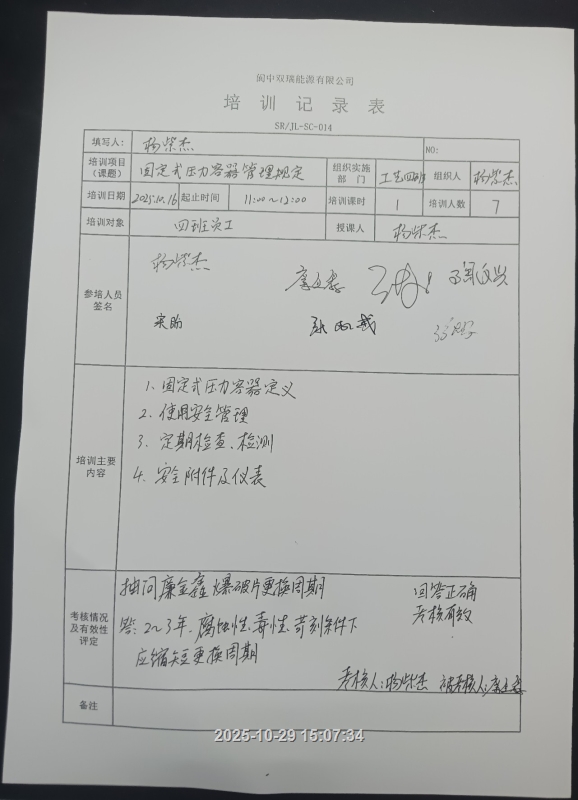 阆中双瑞能源有限公司
培训记录表
SR/JL-SC-014
填写人: 杨柴杰 NO:
培训项目(课题) 固定式压力容器管理规定 组织实施部门 工艺四班 组织人 杨柴杰
培训日期 2025.10.16 起止时间 11:00~12:00 培训课时 1 培训人数 7
培训对象 四班员工 授课人 杨柴杰
参培人员签名
杨柴杰
宋昀
培训主要内容
1. 固定式压力容器定义
2. 使用安全管理
3. 定期检查、检测
4. 安全附件及仪表
考核情况及有效性评定
抽问廉金鑫 爆破片更换周期 回答正确
答: 2~3年. 腐蚀性.毒性.苛刻条件下 考核有效
应缩短更换周期
考核人:杨柴杰 被考核人:
备注
2025-10-29 15:07:34